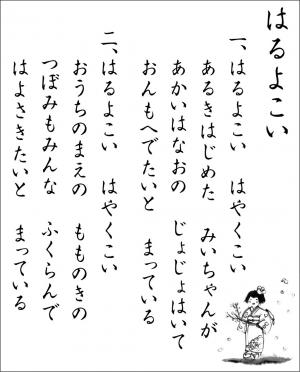 はるよこい
一、はるよこい　はやくこい
あるきはじめた　みいちゃんが
あかいはなおの　じょじょはいて
おんもへでたいと　まっている
二、はるよこい　はやくこい
おうちのまえの　もものきの
つぼみもみんな　ふくらんで
はよさきたいと　まっている